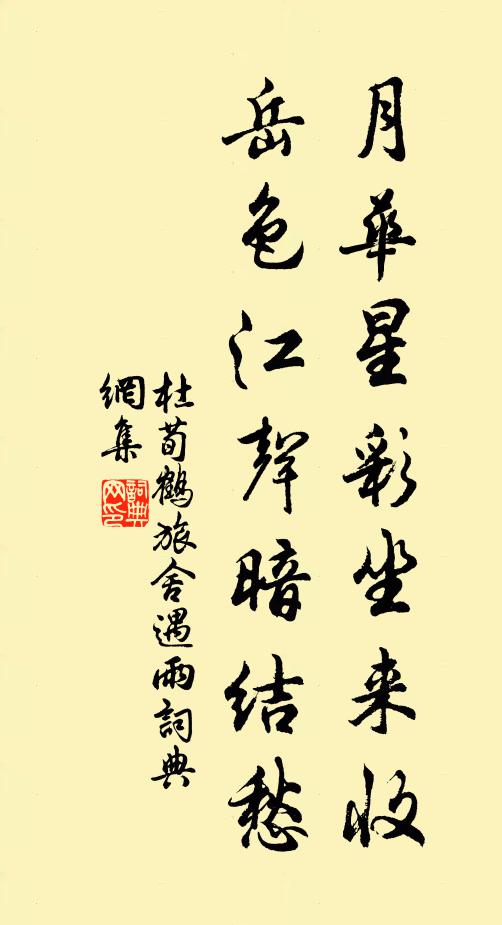 月華星彩坐来收
岳色江聲暗结愁
杜荀鶴旅舍遇雨詞典
網集
詞典網印